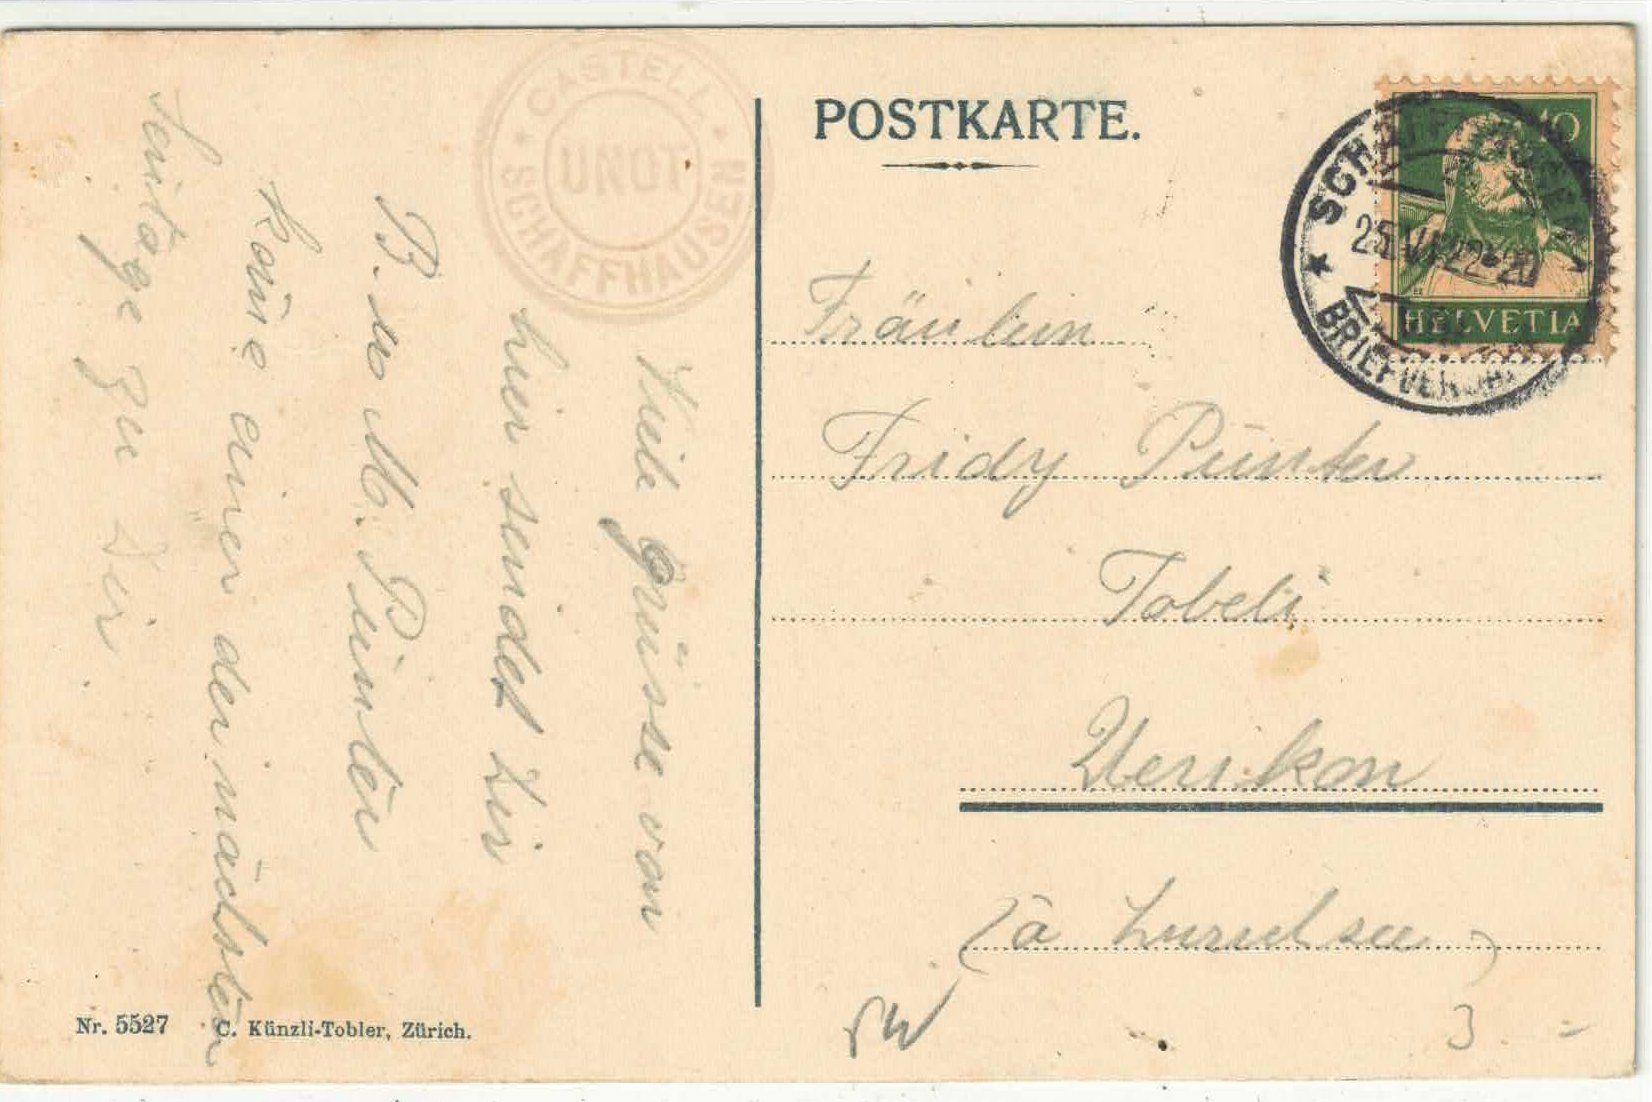 POSTKARTE.
CASTELL
UNOT
SCHAFFHAUSEN
SCHAFFHAUSEN
25.VI.22-20
BRIEFVERSAND
10
HELVETIA
Fräulein
Fridy Pünter
Tobeli
Uerikon
(a Zürichsee)
3 -
Viele Grüsse von
hier sendet Dir
B. u. M. Pünter
Kome einer der nächsten
Sontage zu Dir.
Nr. 5527 C. Künzli-Tobler, Zürich.